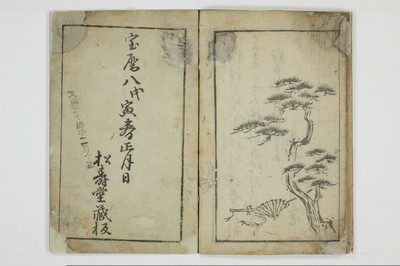 宝暦八戊寅春正月日
松壽堂蔵板